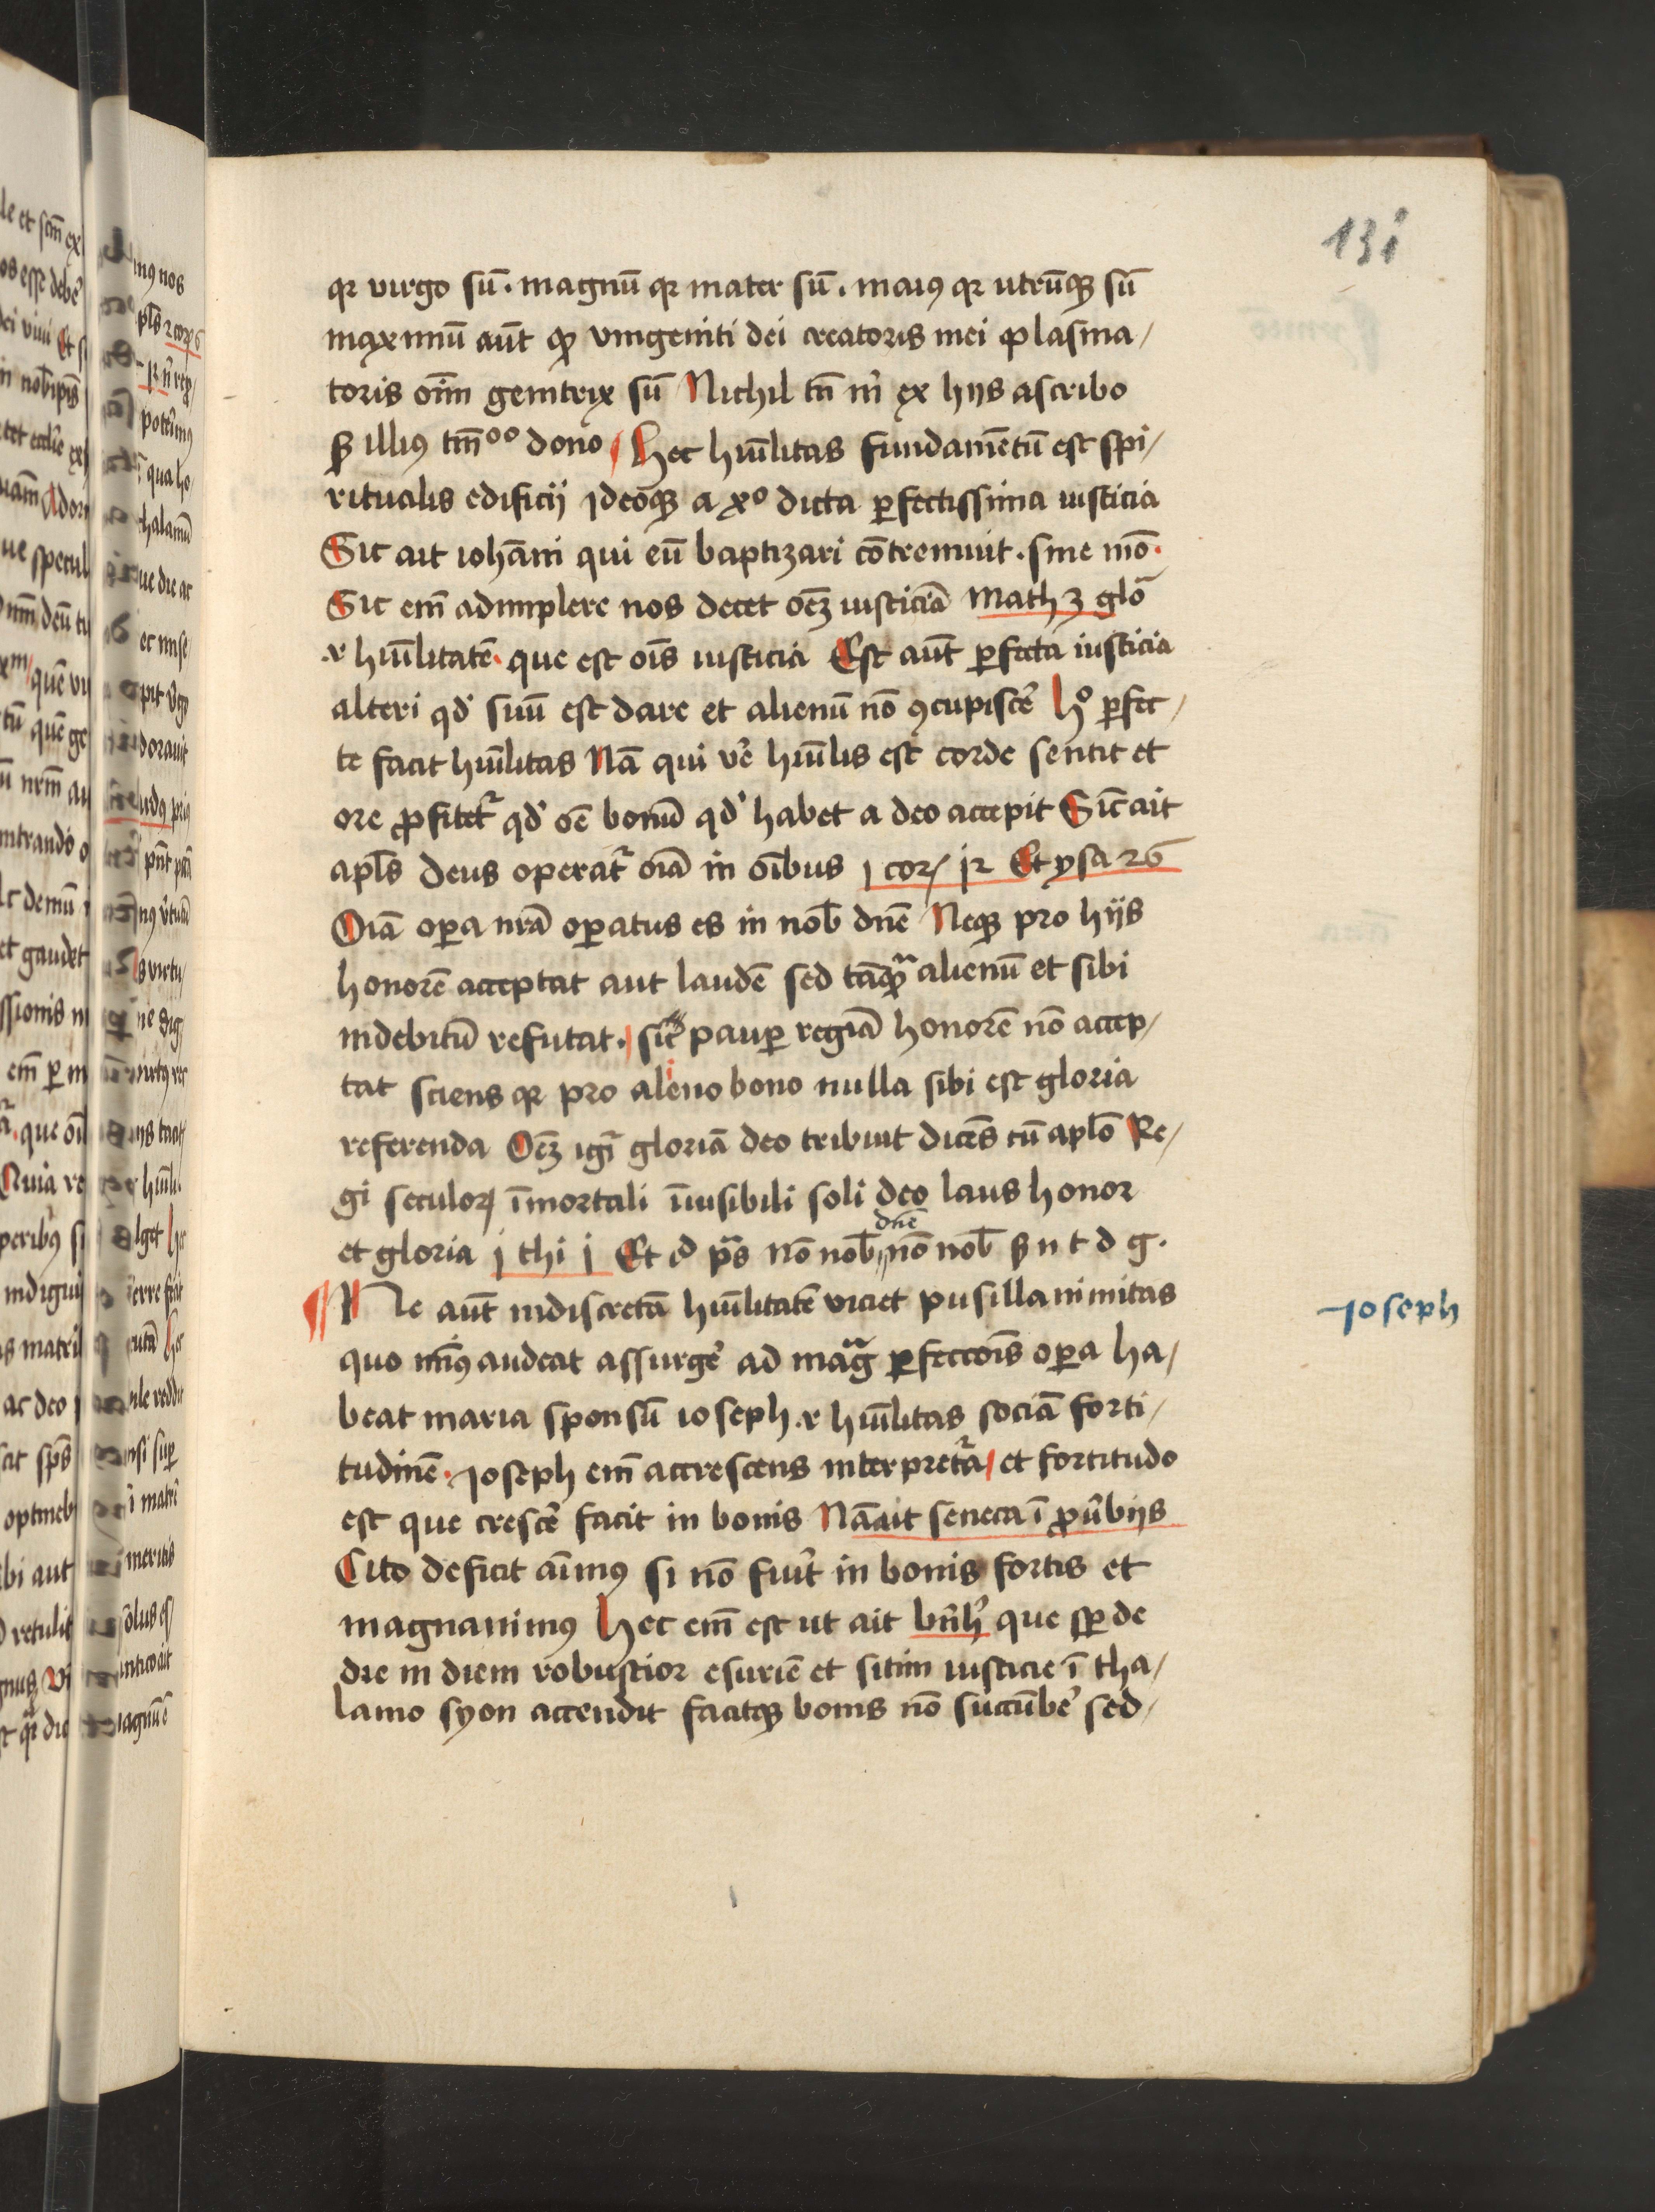 131
qꝛ virgo sū. magnū qꝛ mater sū. maiꝰ qꝛ utrūqꝫ sū
maxmiū aūt qꝙ vnigeniti dei creatoris mei plasma/
toris oīm genitrix sū Nichil tn̄ m̄ ex hijs ascribo
sꝫ illiꝰ tm̄ᵒᵒ dono Hec hūilitas fundamētū est spi/
ritualis edificij ideoqꝫ a xᵒ dicta ꝑfectissima iusticia
Sic ait iohāni qui eū baptizari cōtremuit. sine mō.
Sic em̄ adimplere nos decet oēꝫ iusticiā Math 3 glō
.i. hūilitatē. que est oīs iusticia Est aūt ꝑfecta iusticia
alteri qd' suū est dare et alienū nō ꝯcupiscē hᵒ ꝑfec/
te facit hūilitas Nā qui vē hūilis est corde sentit et
ore ꝓfitet᷑ qd' oē bonū qd' habet a deo accepit Sic ait
apl̄s deus operat᷑ oīa in oībus j coꝝ 12 Et ysa 26
Oīa oꝑa nrā oꝑatus es in nob̄ dn̄e Neqꝫ pro hijs
honorē acceptat aut laudē sed tāqꝙ alienū et sibi
indebitū refutat. sic pauꝑ regiā honorē nō accep/
tat sciens qꝛ pro alieno bono nulla sibi est gloria
referenda Oēꝫ igr̄ gloriā deo tribuit dicēs cū aplō Re/
gi seculoꝝ īmortali īuisibili soli deo laus honor
et gloria j thi j Et id p̄s Nō nob̄ dn̄e nō nob̄ sꝫ n t d g.
¶ Ne aūt indiscretā hūilitatē viciet pusillanimitas
Joseph
quo mīꝰ audeat assurgē ad mag ꝑfectōīs oꝑa ha/
beat maria sponsū ioseph .i. hūilitas sociā forti/
tudinē. Joseph em̄ accrescens interpretat᷑ et fortitudo
est que crescē facit in bonis Nā ait seneca ī ꝓūbijs
Cito deficit aīmꝰ si nō fiūt in bonis fortis et
magnanimꝰ Hec em̄ est ut ait bn̄h' que sꝑ de
die in diem robustior esuriē et sitim iusticie ī tha/
lamo syon accendit facitqꝫ bonis nō succūbē sed/